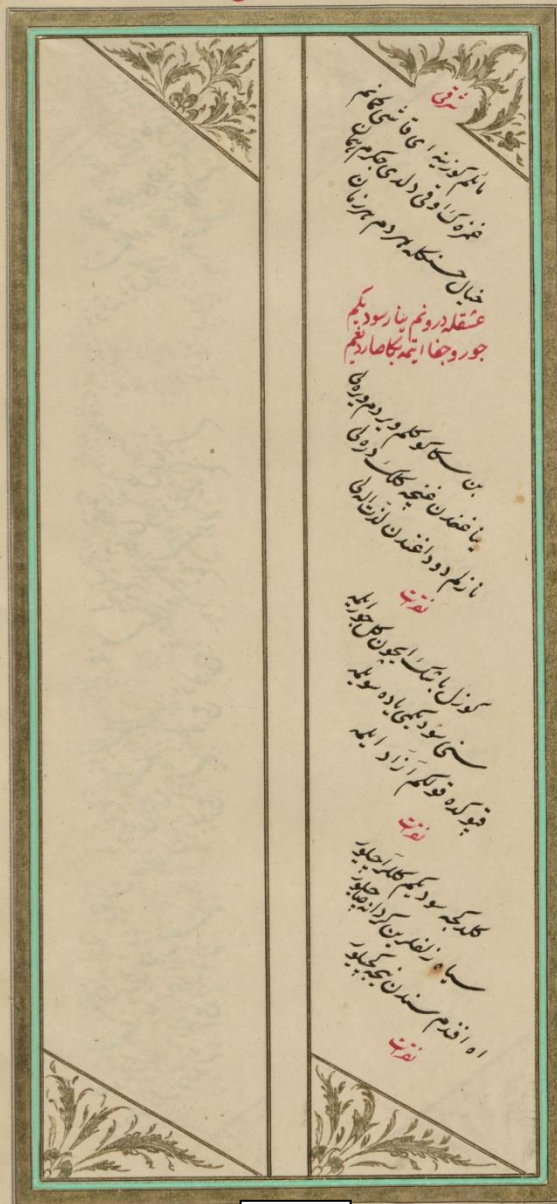 شرقی
مائلم کوزینه ای قاشی کمانم
غمزه ک اوقی دلدی جکرم همان
خیال حسنکله هر دم هر زمان
عشقله درونم یانار سودیکم
جور و جفا ایتمه بکا صاردیغم
بن سکا کوکلم ویردم ویره لی
یناغکدن غنچه کلک دره لی
نازلم دوداغندن لذت اله لی
نقرات
کوزل باشک ایچون کل جور ایلمه
سنی سودیکمی یاده سویلمه
قپوکده قولکم آزاد ایلمه
نقرات
کلدکجه سودیکم کللر آچیلور
سیاه زلفلرین کردانه صاچیلور
اه افندم سندن نیجه کچیلور
نقرات